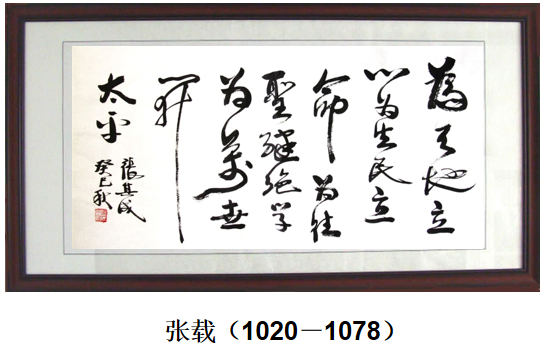 為天地立
心为生民立
命为往
聖继绝学
为萬世
开
太平
張其成
癸巳秋
张载（1020－1078）